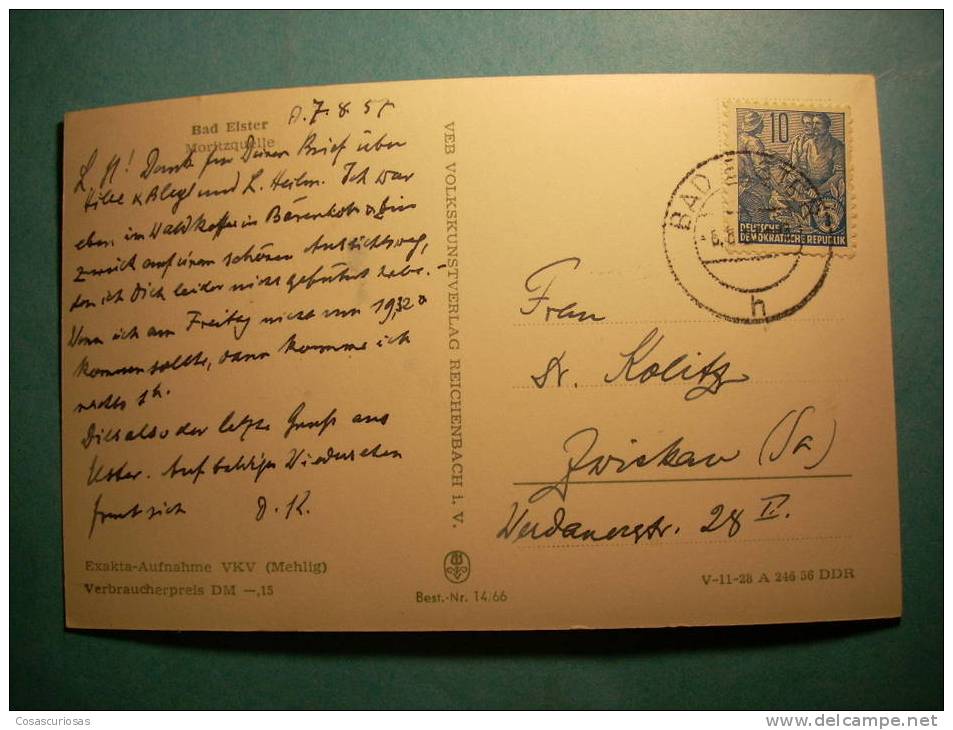 Bad Elster
Moritzquelle
d. 7. 8. 57
L. H! Dank für Deinen Brief über
und L. Heilm. Ich war
eben im Waldkaffee in Bärenloh & bin
zurück auf einem schönen Aussichtsweg,
den ich Dich leider nicht geführt habe. -
Wenn ich am Freitag nicht um 19 32
kommen sollte, dann komme ich
nachts 1h.
Dies also der letzte Gruß aus
Elster. Auf baldiges Wiedersehen
freut sich D. K.
Exakta-Aufnahme VKV (Mehlig)
Verbraucherpreis DM —,15
VEB VOLKSKUNSTVERLAG REICHENBACH i. V.
Best.-Nr. 14/66
10
DEUTSCHE
DEMOKRATISCHE REPUBLIK
BAD
h
Frau
Dr. Kolitz
Zwickau (Sa)
Werdauerstr. 28 II.
V-11-28 A 246 56 DDR
Cosascuriosas
www.delcampe.net